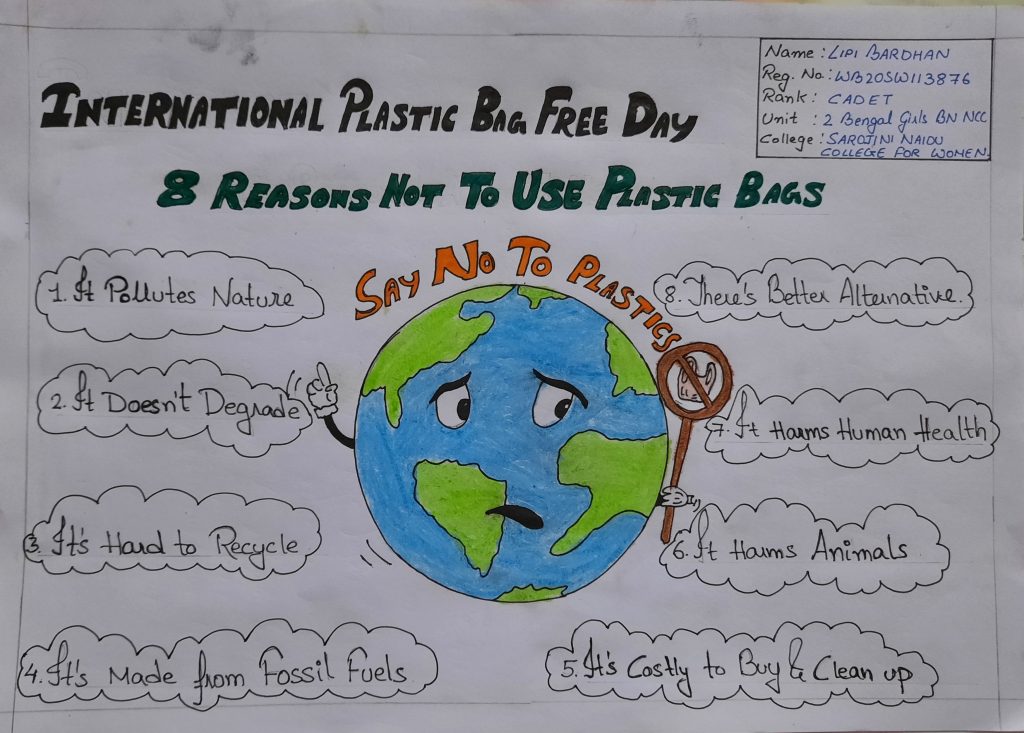 Name : LIPI BARDHAN
Reg. No : WB20SW113876
Rank : CADET
Unit : 2 Bengal Girls BN NCC
College : SAROJINI NAIDU
COLLEGE FOR WOMEN.
INTERNATIONAL PLASTIC BAG FREE DAY
8 REASONS NOT TO USE PLASTIC BAGS
SAY NO TO PLASTICS
1. It Pollutes Nature
2. It Doesn't Degrade
3. It's Hard to Recycle
4. It's Made from Fossil Fuels
5. It's Costly to Buy & Clean up
6. It Harms Animals
7. It Harms Human Health
8. There's Better Alternative.